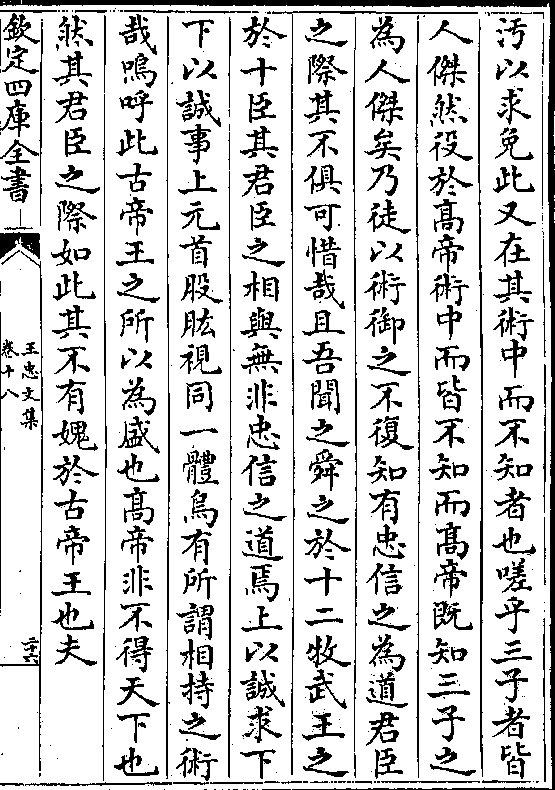 汚以求免此又在其術中而不知者也嗟乎三子者皆
人傑然役於髙帝術中而皆不知而髙帝既知三子之
為人傑矣乃徒以術御之不復知有忠信之為道君臣
之際其不俱可惜哉且吾聞之舜之於十二牧武王之
於十臣其君臣之相與無非忠信之道焉上以誠求下
下以誠事上元首股肱視同一體烏有所謂相持之術
哉嗚呼此古帝王之所以為盛也髙帝非不得天下也
然其君臣之際如此其不有媿於古帝王也夫
欽定四庫全書
王忠文集
卷十八
二六